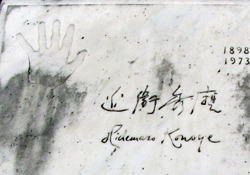 1898
1973
近衛秀麿
Hidemaro Konoye